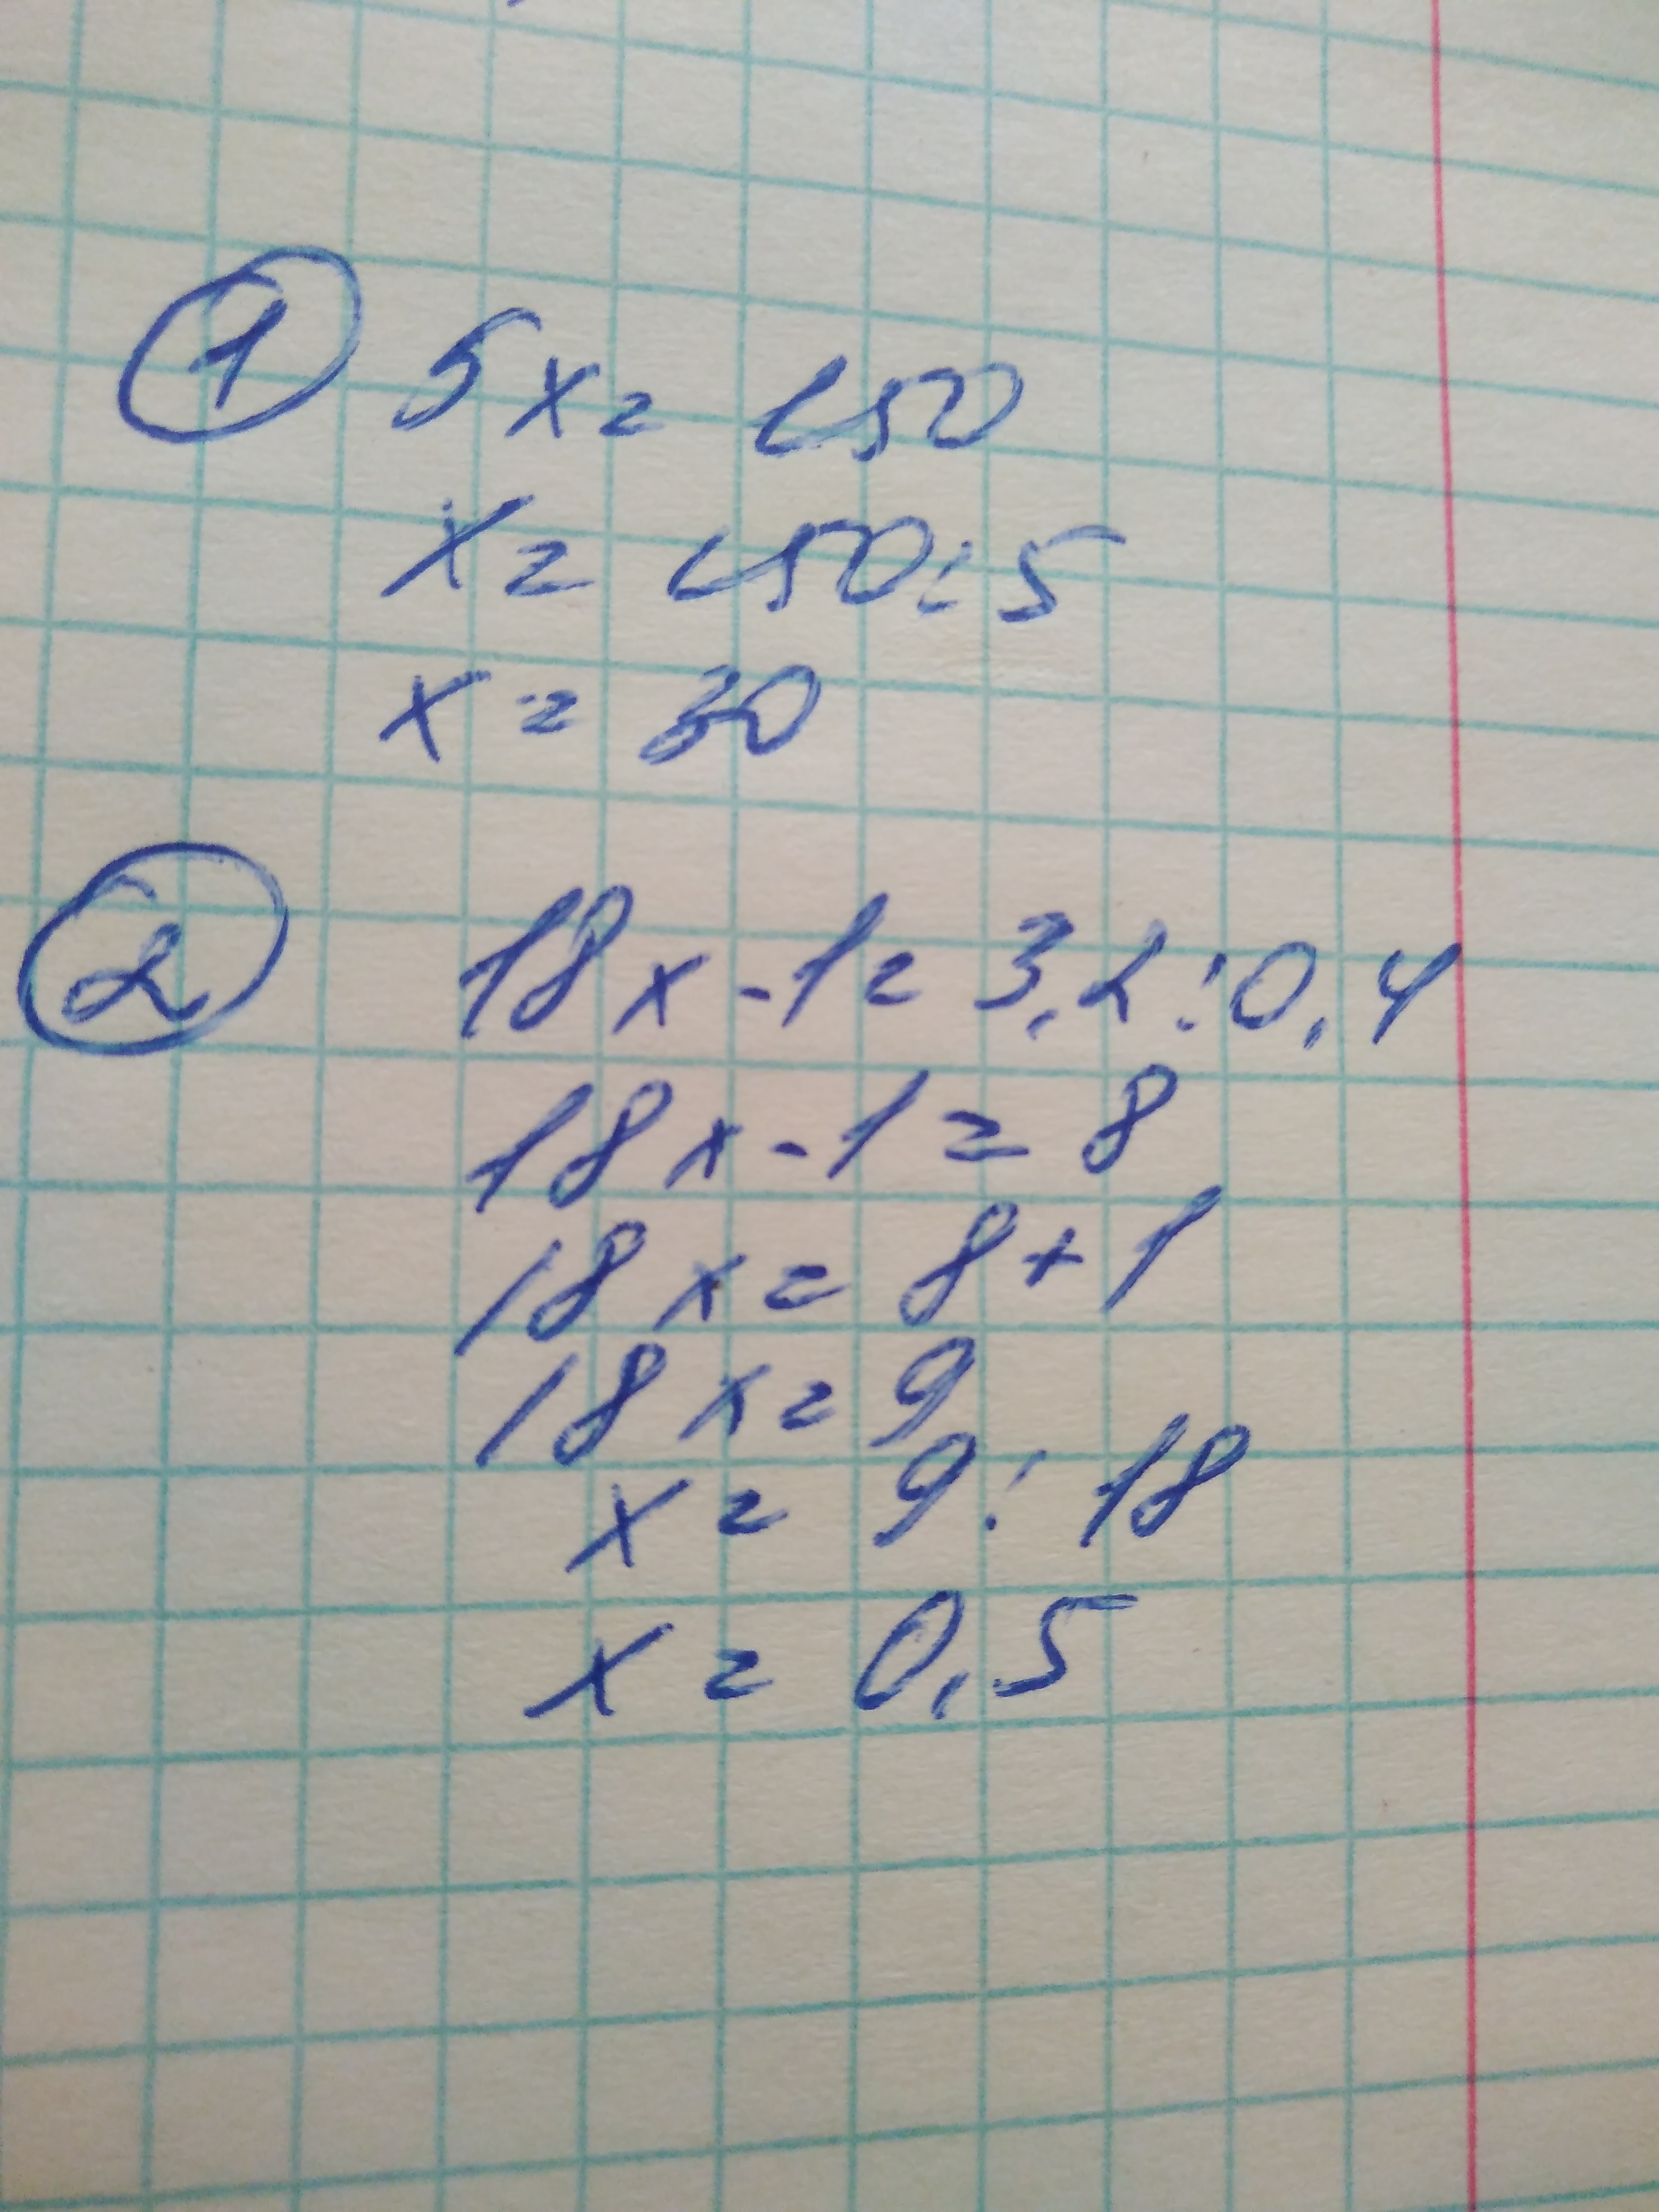 1 5x = 150
x = 150 : 5
x = 30
2 18x - 1 = 3,2 : 0,4
18x - 1 = 8
18x = 8 + 1
18x = 9
x = 9 : 18
x = 0,5